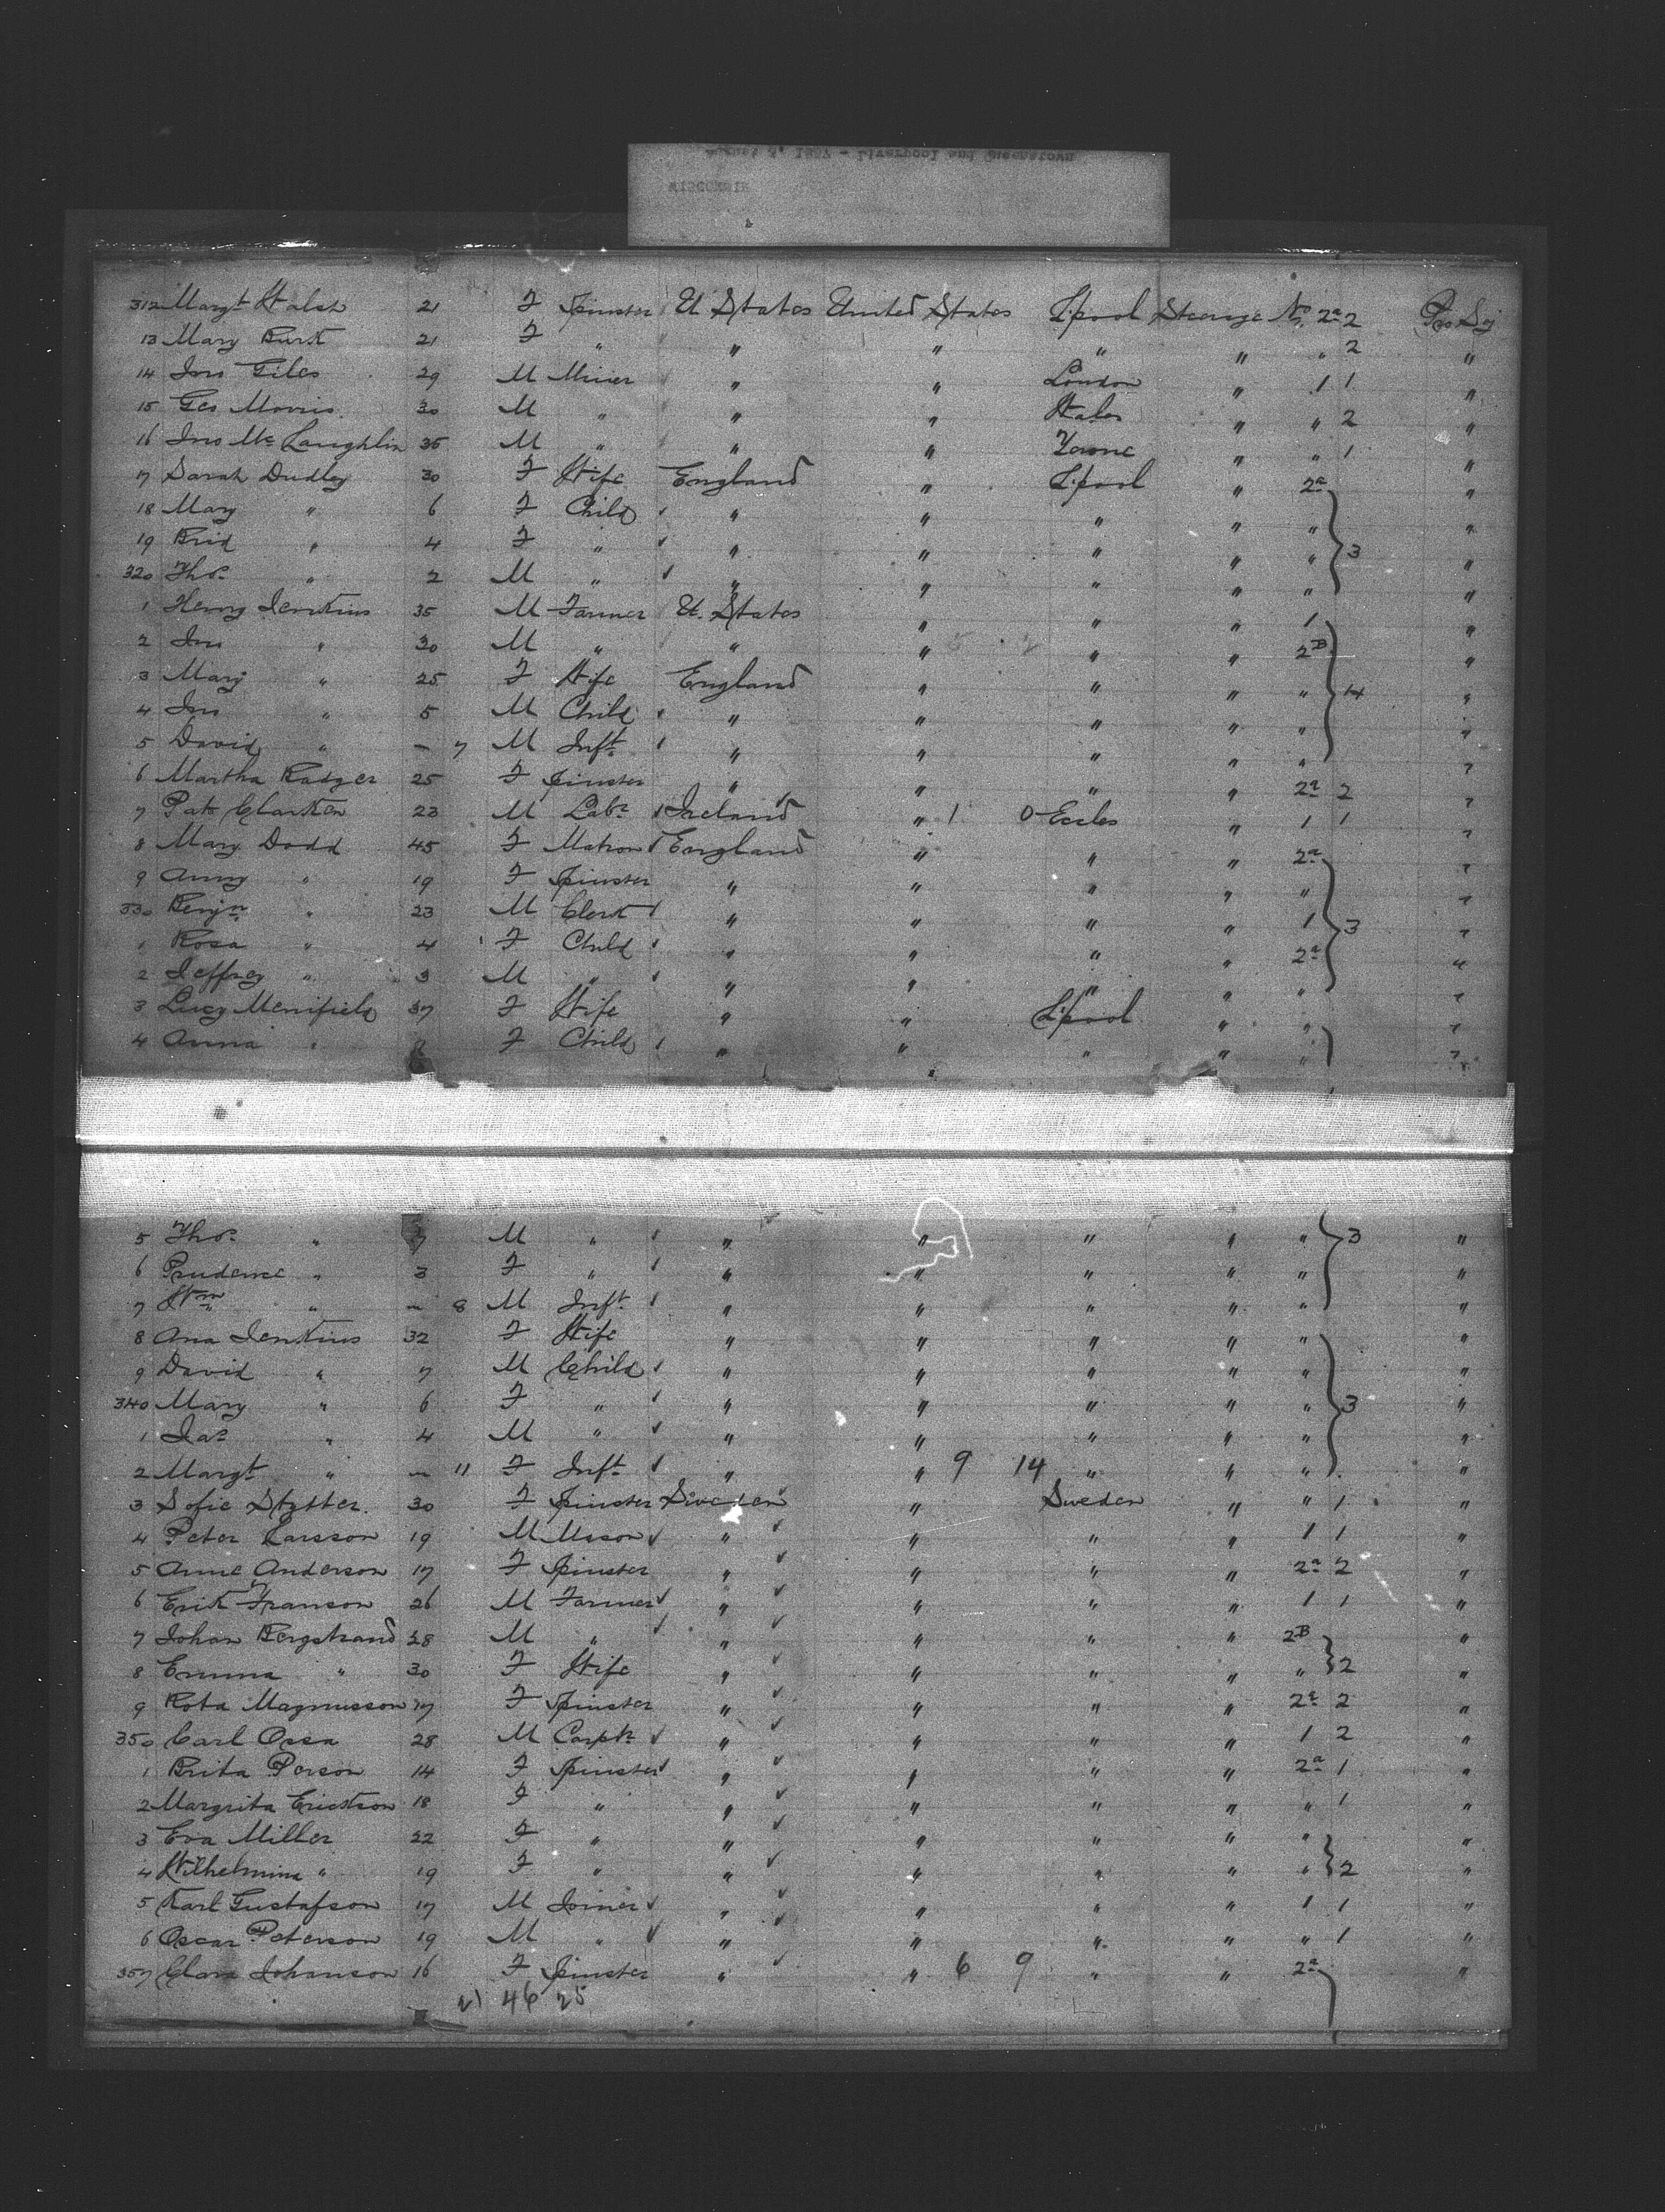 August 3, 1887 - Liverpool and Queenstown
WISCONSIN
312 Margt Walsh 21 F Spinster U States United States L'pool Steerage No 2a 2 Pro Soj
13 Mary Burk 21 F " " " " " " 2 "
14 Jno Giles 29 M Miner " " London " 1 1 "
15 Geo Morris 30 M " " " Wales " " 2 "
16 Jno McLaughlin 35 M " " " Tyrone " " 1 "
17 Sarah Dudley 30 F Wife England " L'pool " 2a "
18 Mary " 6 F Child " " " " " "
19 Brid " 4 F " " " " " " 3 "
320 Thos " 2 M " " " " " " "
1 Henry Jenkins 35 M Farmer U. States " " " 1 "
2 Jno " 30 M " " " " " 2B "
3 Mary " 25 F Wife England " " " " 4 "
4 Jno " 5 M Child " " " " " "
5 David " - 7 M Inft " " " " " "
6 Martha Badger 25 F Spinster " " " " 2a 2 "
7 Pat Clarken 23 M Labr Ireland " 1 0 Eccles " 1 1 "
8 Mary Dodd 45 F Matron England " " " 2a "
9 Anny " 19 F Spinster " " " " " "
330 Benjn " 23 M Clerk " " " " 1 3 "
1 Rosa " 4 F Child " " " " 2a "
2 Jeffrey " 3 M " " " " " " "
3 Lucy Merrifield 37 F Wife " " L'pool " " "
4 Anna " F Child " " " " " "
5 Thos " M " " " " " " 3 "
6 Prudence " 3 F " " " " " " "
7 Wm " - 8 M Inft " " " " " "
8 Ana Jenkins 32 F Wife " " " " " "
9 David " 7 M Child " " " " " "
340 Mary " 6 F " " " " " " 3 "
1 Jas " 4 M " " " " " " "
2 Margt " - 11 F Inft " " 9 14 " " " "
3 Sofie Stytter 30 F Spinster Sweden " Sweden " " 1 "
4 Peter Larsson 19 M Mason " " " " 1 1 "
5 Anne Anderson 17 F Spinster " " " " 2a 2 "
6 Erik Franson 26 M Farmer " " " " 1 1 "
7 Johan Bergstrand 28 M " " " " " 2B "
8 Emma " 30 F Wife " " " " " 2 "
9 Magnusson 17 F Spinster " " " " 2a 2 "
350 Carl Ossa 28 M Carptr " " " " 1 2 "
1 Brita Person 14 F Spinster " " " " 2a 1 "
2 Margrita Erickson 18 F " " " " " " 1 "
3 Eva Miller 22 F " " " " " " "
4 Wilhelmina " 19 F " " " " " " 2 "
5 Karl Gustafson 17 M Joiner " " " " 1 1 "
6 Oscar Peterson 19 M " " " " " " 1 "
357 Clara Johanson 16 F Spinster " " 6 9 " " 2a "
21 46 25